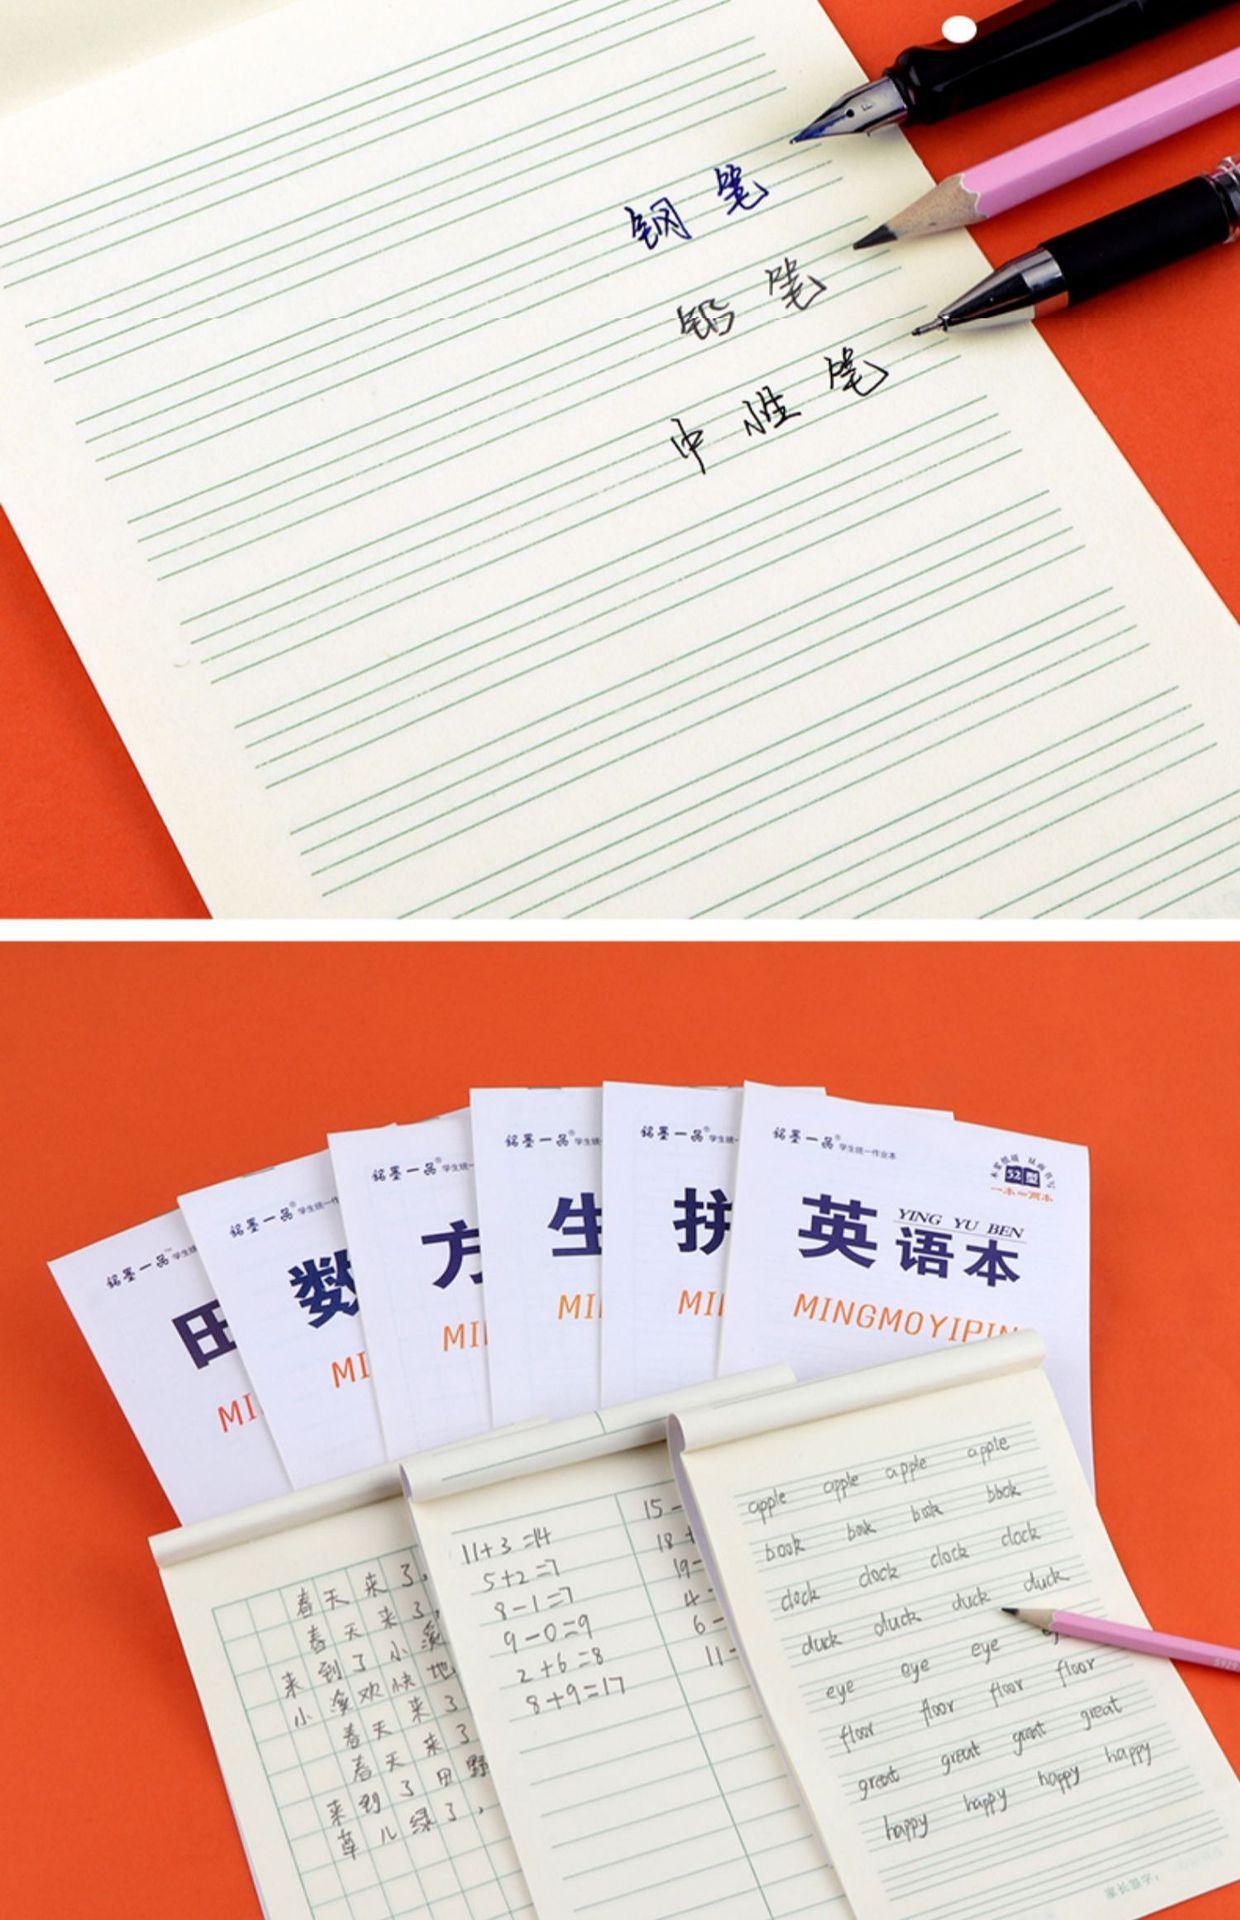 钢笔
铅笔
中性笔
铭墨一品™学生统
田
MI
铭墨一品®学生统一作
数
MI
铭墨一品®学生统一
方
MI
铭墨一品®学生统一
生
MI
铭墨一品®学生统一
拼
MI
铭墨一品®学生统一作业本
52型
一本=两本
YING YU BEN
英语本
MINGMOYIPIN
春天来了,
春天来了,
来到了小溪
小溪欢快地
春天来了
春天来了
来到了田野
草儿绿了,
11+3=14
5+2=7
8-1=7
9-0=9
2+6=8
8+9=17
15-
18+
19-
4-
6-
11-
apple apple apple apple
book book book book
clock clock clock clock
duck duck duck duck
eye eye eye
floor floor floor floor
great great great great
happy happy happy happy